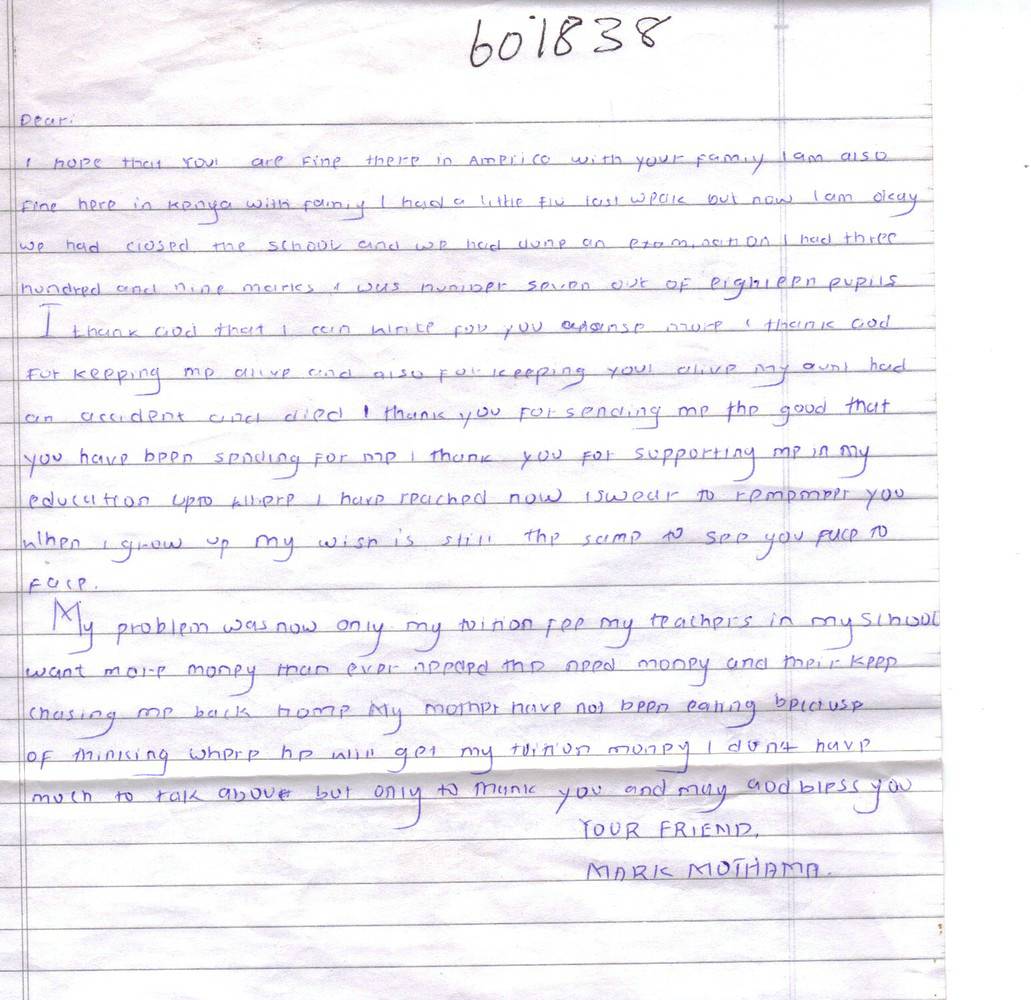 601838
Dear:
I hope that You are Fine there in America with your Family I am also
Fine here in Kenya with Famiy I had a little Flu last weak but now I am okay
we had closed the school and we had done an examination I had three
hundred and nine marks I was number seven out of eighteen pupils
I thank God that I can write for you more I thank God
For keeping me alive and also For keeping you alive my aunt had
an accident and died I thank you For sending me the good that
you have been sending For me I thank you For supporting me in my
education upto where I have reached now I swear to remember you
when I grow up my wish is still the same to see you Face to
Face.
My problem was now only my tuition Fee my teachers in my school
want more money than ever needed the need money and their keep
chasing me back home My mother have not been eating because
of thinking where he will get my tuition money I don't have
much to talk above but only to thank you and may God bless you
YOUR FRIEND,
MARK MOTHAMA.